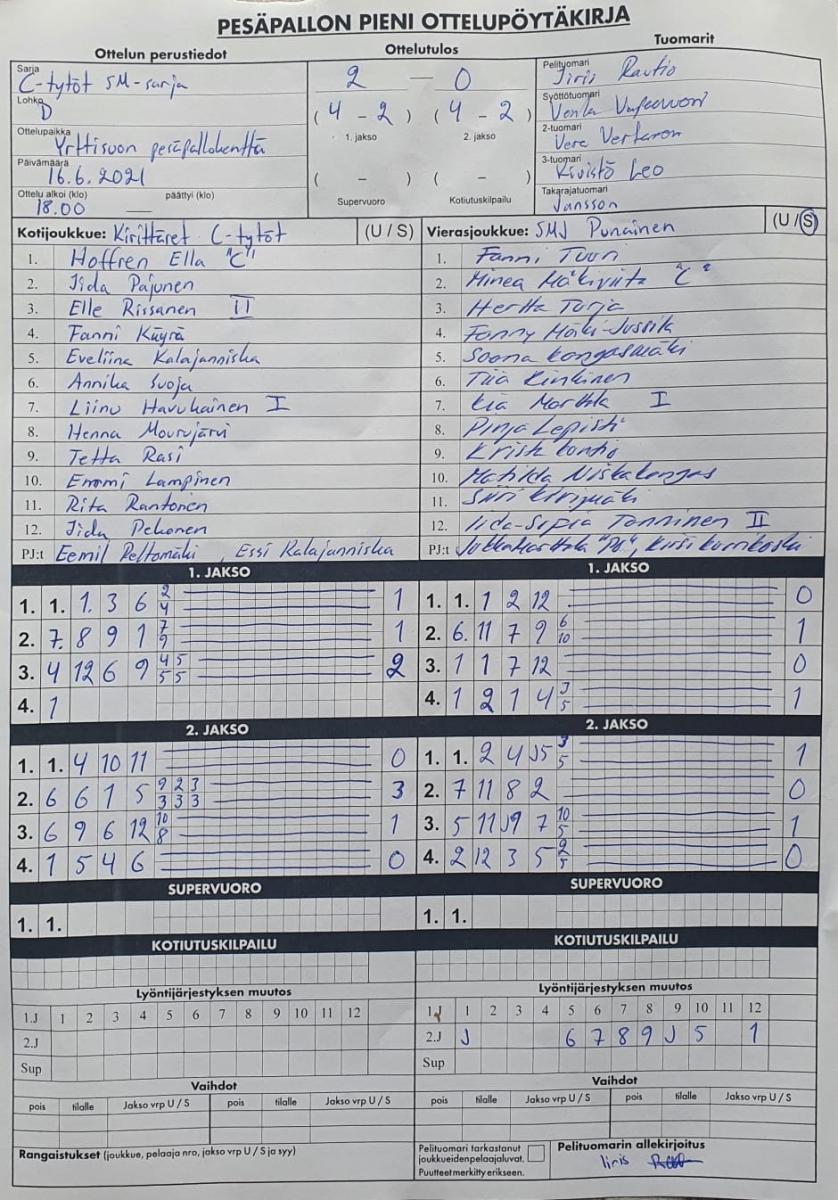 PESÄPALLON PIENI OTTELUPÖYTÄKIRJA
Ottelun perustiedot
Ottelutulos
Tuomarit
Sarja
C-tytöt SM-sarja
Lohko
D
Ottelupaikka
Yrttisuon pesäpallokenttä
Päivämäärä
16.6.2021
Ottelu alkoi (klo) päättyi (klo)
18.00 —
2 — 0
(4 - 2) (4 - 2)
1. jakso 2. jakso
( - ) ( - )
Supervuoro Kotiutuskilpailu
Pelituomari
Iiris Rautio
Syöttötuomari
Venla
2-tuomari
Vera Vertanen
3-tuomari
Kivistö Leo
Takarajatuomari
Jansson
Kotijoukkue: Kirittäret C-tytöt (U / S)
1. Hoffren Ella "C"
2. Iida Pajunen
3. Elle Rissanen II
4. Fanni Käyrä
5. Eveliina Kalajanniska
6. Annika Suoja
7. Liinu Havukainen I
8. Henna Mourujärvi
9. Tetta Rasi
10. Emmi Lampinen
11. Rita Rantonen
12. Iida Pekonen
PJ:t Eemil Peltomäki, Essi Kalajanniska
Vierasjoukkue: SMJ Punainen (U / S)
1. Fanni Tuuri
2. Minea Mäkiviita "C"
3. Hertta Turja
4. Fanny Mäki-Jussila
5. Soona Kangasmäki
6. Tiia Kinkinen
7. Kia Marttila I
8. Pinja Lepistö
9. Krista Kontio
10. Matilda Niskakangas
11. Siiri
12. Iida-Sofia Tanninen II
PJ:t Jukka Marttala "PJ", Kirsi Korrikoski
1. JAKSO
1. 1. 1. 3 6 2 4 1
2. 7. 8 9 1 7 9 1
3. 4 12 6 9 4 5 5 5 2
4. 1
1. JAKSO
1. 1. 1 2 12 0
2. 6. 11 7 9 6 10 1
3. 1 1 7 12 0
4. 1 2 1 4 J 5 1
2. JAKSO
1. 1. 4 10 11 0
2. 6 6 1 5 9 2 3 3 3 3 3
3. 6 9 6 12 10 8 1
4. 1 5 4 6 0
2. JAKSO
1. 1. 2 4 J5 3 5 1
2. 7 11 8 2 0
3. 5 11 J9 7 10 5 1
4. 2 12 3 5 2 5 0
SUPERVUORO
1. 1.
SUPERVUORO
1. 1.
KOTIUTUSKILPAILU
KOTIUTUSKILPAILU
Lyöntijärjestyksen muutos
1.J 1 2 3 4 5 6 7 8 9 10 11 12
2.J
Sup
Lyöntijärjestyksen muutos
1.J 1 2 3 4 5 6 7 8 9 10 11 12
2.J J 6 7 8 9 J 5 1
Sup
Vaihdot
pois tilalle Jakso vrp U / S pois tilalle Jakso vrp U / S
Vaihdot
pois tilalle Jakso vrp U / S pois tilalle Jakso vrp U / S
Rangaistukset (joukkue, pelaaja nro, jakso vrp U / S ja syy)
Pelituomari tarkastanut
joukkueidenpelaajaluvat.
Puutteet merkitty erikseen.
Pelituomarin allekirjoitus
Iiris